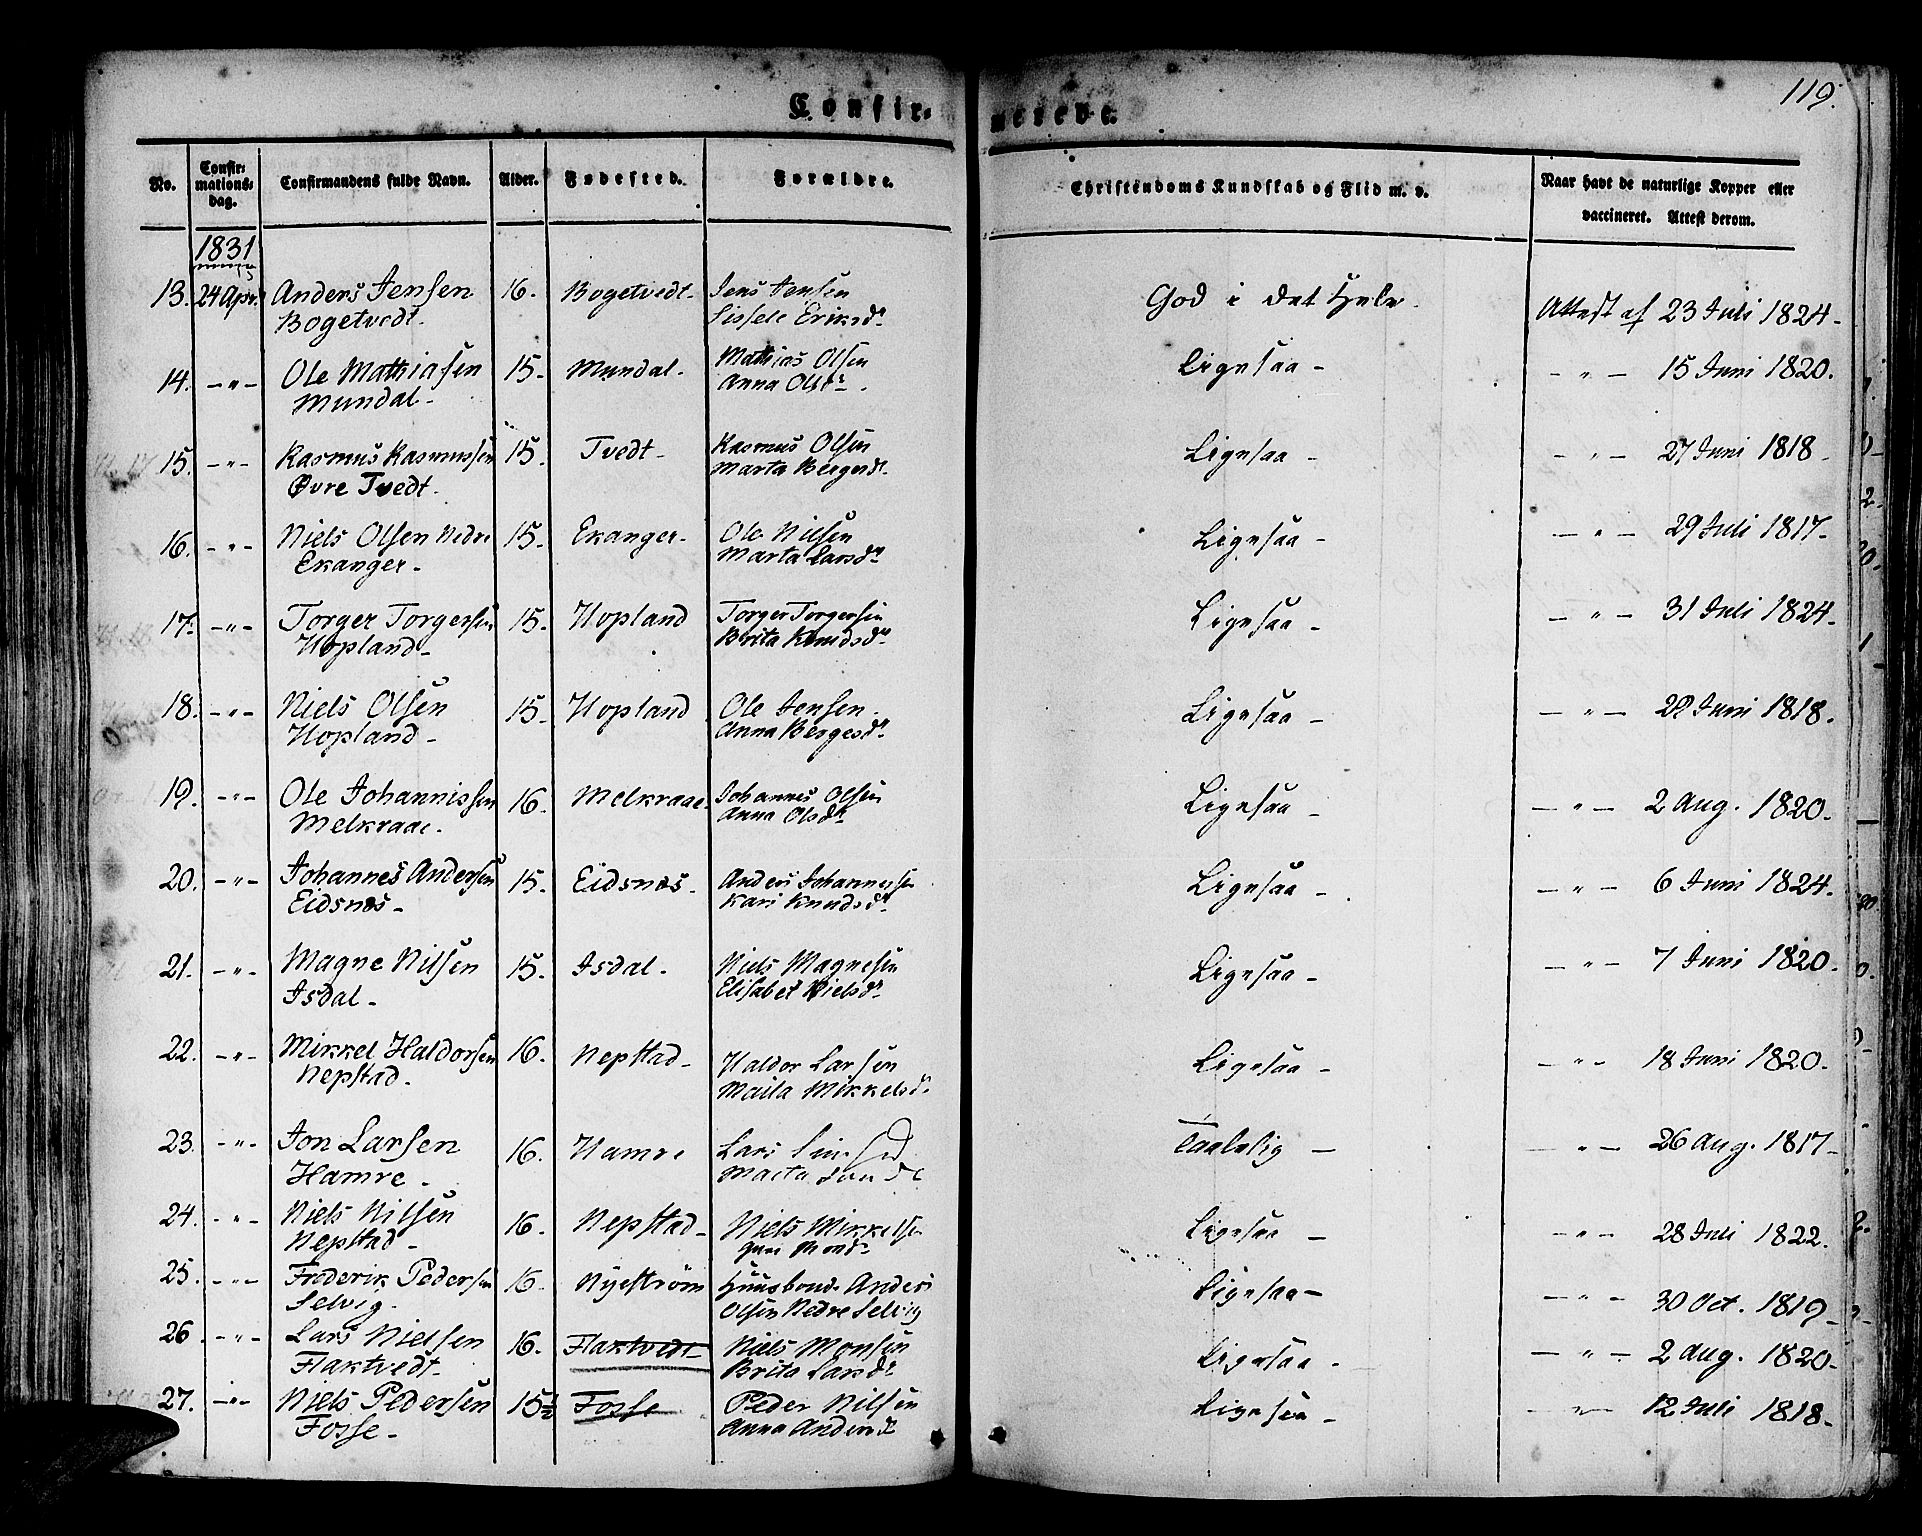 119.
Confirmerede.
No. | Confirmationsdag. | Confirmandens fulde Navn. | Alder. | Fødested. | Forældre. | Christendoms Kundskab og Flid m. v. | Naar havt de naturlige Kopper eller vaccineret. Attest derom.
1831
13. | 24 Apr. | Anders Jensen Bogetvedt. | 16. | Bogetvedt. | Jens Jensen Sissele Eriksdr | God i det Hele. | Attest af 23 Juli 1824.
14. | –"– | Ole Mathiasen Mundal. | 15. | Mundal. | Mathias Olsen Anna Olsdr. | Ligesaa – | –"– 15 Juni 1820.
15. | –"– | Rasmus Rasmussen Øvre Tvedt. | 15. | Tvedt. | Rasmus Olsen Marta Bergesdr. | Ligesaa – | –"– 27 Juni 1818.
16. | –"– | Niels Olsen Nedre Ekanger. | 15. | Ekanger. | Ole Nilsen Marta Larsdr | Ligesaa – | –"– 29 Juli 1817.
17. | –"– | Torger Torgersen Hopland – | 15. | Hopland | Torger Torgersen Brita Knudsdr | Ligesaa – | –"– 31 Juli 1824.
18. | –"– | Niels Olsen Hopland – | 15. | Hopland | Ole Jensen. Anna Bergesdr | Ligesaa – | –"– 29 Juni 1818.
19. | –"– | Ole Johannissen Melkraae. | 16. | Melkraae. | Johannes Olsen Anna Olsdr | Ligesaa – | –"– 2 Aug. 1820.
20. | –"– | Johannes Andersen Eidsnes – | 15. | Eidsnes. | Anders Johannessen Kari Knudsdr | Ligesaa – | –"– 6 Juni 1824.
21. | –"– | Magne Nilsen Isdal – | 15. | Isdal. | Niels Magnesen Elisabet Nielsdr | Ligesaa – | –"– 7 Juni 1820.
22. | –"– | Mikkel Haldorsen Nepstad. | 16. | Nepstad – | Haldor Larsen Maita Mikkelsdr | Ligesaa – | –"– 18 Juni 1820.
23. | –"– | Jon Larsen Hamre. | 16. | Hamre | Lars Marta | Taalelig – | –"– 26 Aug. 1817.
24. | –"– | Niels Nilsen Nepstad – | 16. | Nepstad – | Niels Mikkelsen | Ligesaa – | –"– 28 Juli 1822.
25. | –"– | Frederik Pedersen Selvig. | 16. | Nyestrøm | Huusbond. Anders Olsen Nedre Selvig | Ligesaa – | –"– 30 Oct. 1819.
26. | –"– | Lars Nielsen Flaktvedt. | 16. | Flaktvedt | Niels Monsen Brita Larsdr | Ligesaa – | –"– 2 Aug. 1820.
27. | –"– | Niels Pedersen Fosse – | 15½ | Fosse | Peder Nilsen Anna Andersdr | Ligesaa – | –"– 12 Juli 1818.